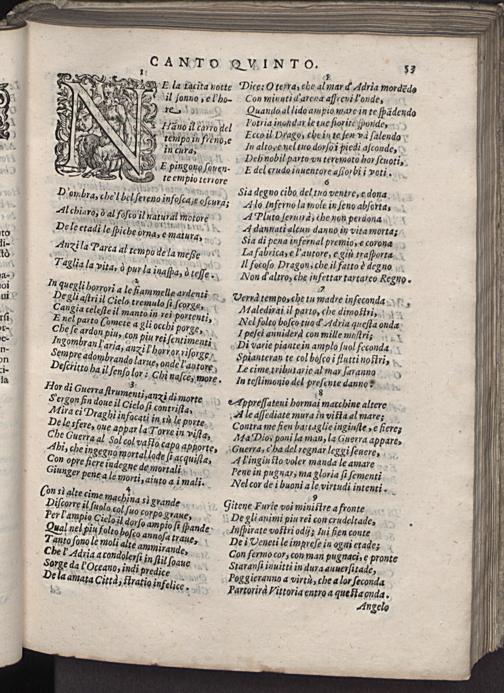 CANTO QVINTO.
53
1
NE la tacita notte
il sonno, e l'hore,
Hãno il corro del
tempo in freno, e
in cura,
E pingono souente
tempio terrore
D'ombra, che'l bel sereno infosca, e oscura;
Al chiaro, ò al fosco il natural motore
De le etadi le spiche orna, e matura,
Anzi la Parca al tempo de la messe
Taglia la vita, ò pur la inaspa, ò tesse.
2
In quegli horrori a le fiammelle ardenti
De gli astri il Cielo tremulo si scorge,
Cangia celeste il manto in rei portenti,
E nel parto Comete a gli occhi porge,
Che se ardon piu, con piu rei sentimenti
Ingombran l'aria, anzi l'horror risorge
Sempre adombrando larue, onde l'autore
Descritto ha il senso lor: Chi nasce, more.
3
Hor di Guerra strumenti, anzi di morte
S'ergon fin doue il Cielo si contrista,
Mira ei Draghi infocati in sù le porte
De le sfere, oue appar la Torre in vista,
Che Guerra al Sol col vasto capo apporte,
Ahi, che ingegno mortal lode si acquista,
Con opre fiere indegne de mortali
Giunger pene a le morti, aiuto a i mali.
4
Con sì alte cime machina sì grande
Discorre il suolo col suo corpo graue,
Per l'ampio Cielo il dorso ampio si spande
Qual nel piu folto bosco annosa traue,
Tanto sono le moli alte ammirande,
Che l'Adria a condolersi in stil soaue
Sorge da l'Oceano, indi predice
De la amata Città, stratio infelice.
5
Dice: O terra, che al mar d'Adria mordẽdo
Con minuti d'arena affreni l'onde,
Quando al lido ampio mare in te spãdendo
Potria inondar le tue fiorite sponde,
Ecco il Drago, che in te sen và salendo
In alto, e nel tuo dorso i piedi asconde,
De limobil parto vn teremoto hor scuoti,
E del crudo inuentore assorbi i voti.
6
Sia degno cibo del tuo ventre, e dona
A lo Inferno la mole in seno absorta,
A Pluto seruirà, che non perdona
A dannati alcun danno in vita morta;
Sia di pena infernal premio, e corona
La fabrica, e l'autore, e giù trasporta
Il focoso Dragon, che il fatto è degno
Non d'altro, che infettar tartareo Regno.
7
Verrà tempo, che tu madre infeconda
Maledirai il parto, che dimostri,
Nel folto bosco tuo d'Adria questa onda
I pesci anniderà con mille mostri;
Di varie piante in amplo suol feconda
Spianteran te col bosco i flutti nostri,
Le cime tributarie al mar saranno
In testimonio del presente danno.
8
Appressateui hormai macchine altere
A le assediate mura in vista al mare;
Contra me sien battaglie ingiuste, e fiere;
Ma Dio, poni la man, la Guerra appare,
Guerra, c'ha del regnar leggi seuere,
A l'ingiusto voler manda le amare
Pene in pugnar, ma gloria si sementi
Nel cor de i buoni a le virtudi intenti.
9
Gitene Furie voi ministre a fronte
De gli animi piu rei con crudeltade,
Inspirate vostri odij; Iui sien conte
De i Veneti le imprese in ogni etade;
Con fermo cor, con man pugnaci, e pronte
Staransi inuitti in dura auuersitade,
Poggieranno a virtù, che a lor seconda
Partorirà Vittoria entro a questa onda.
Angelo